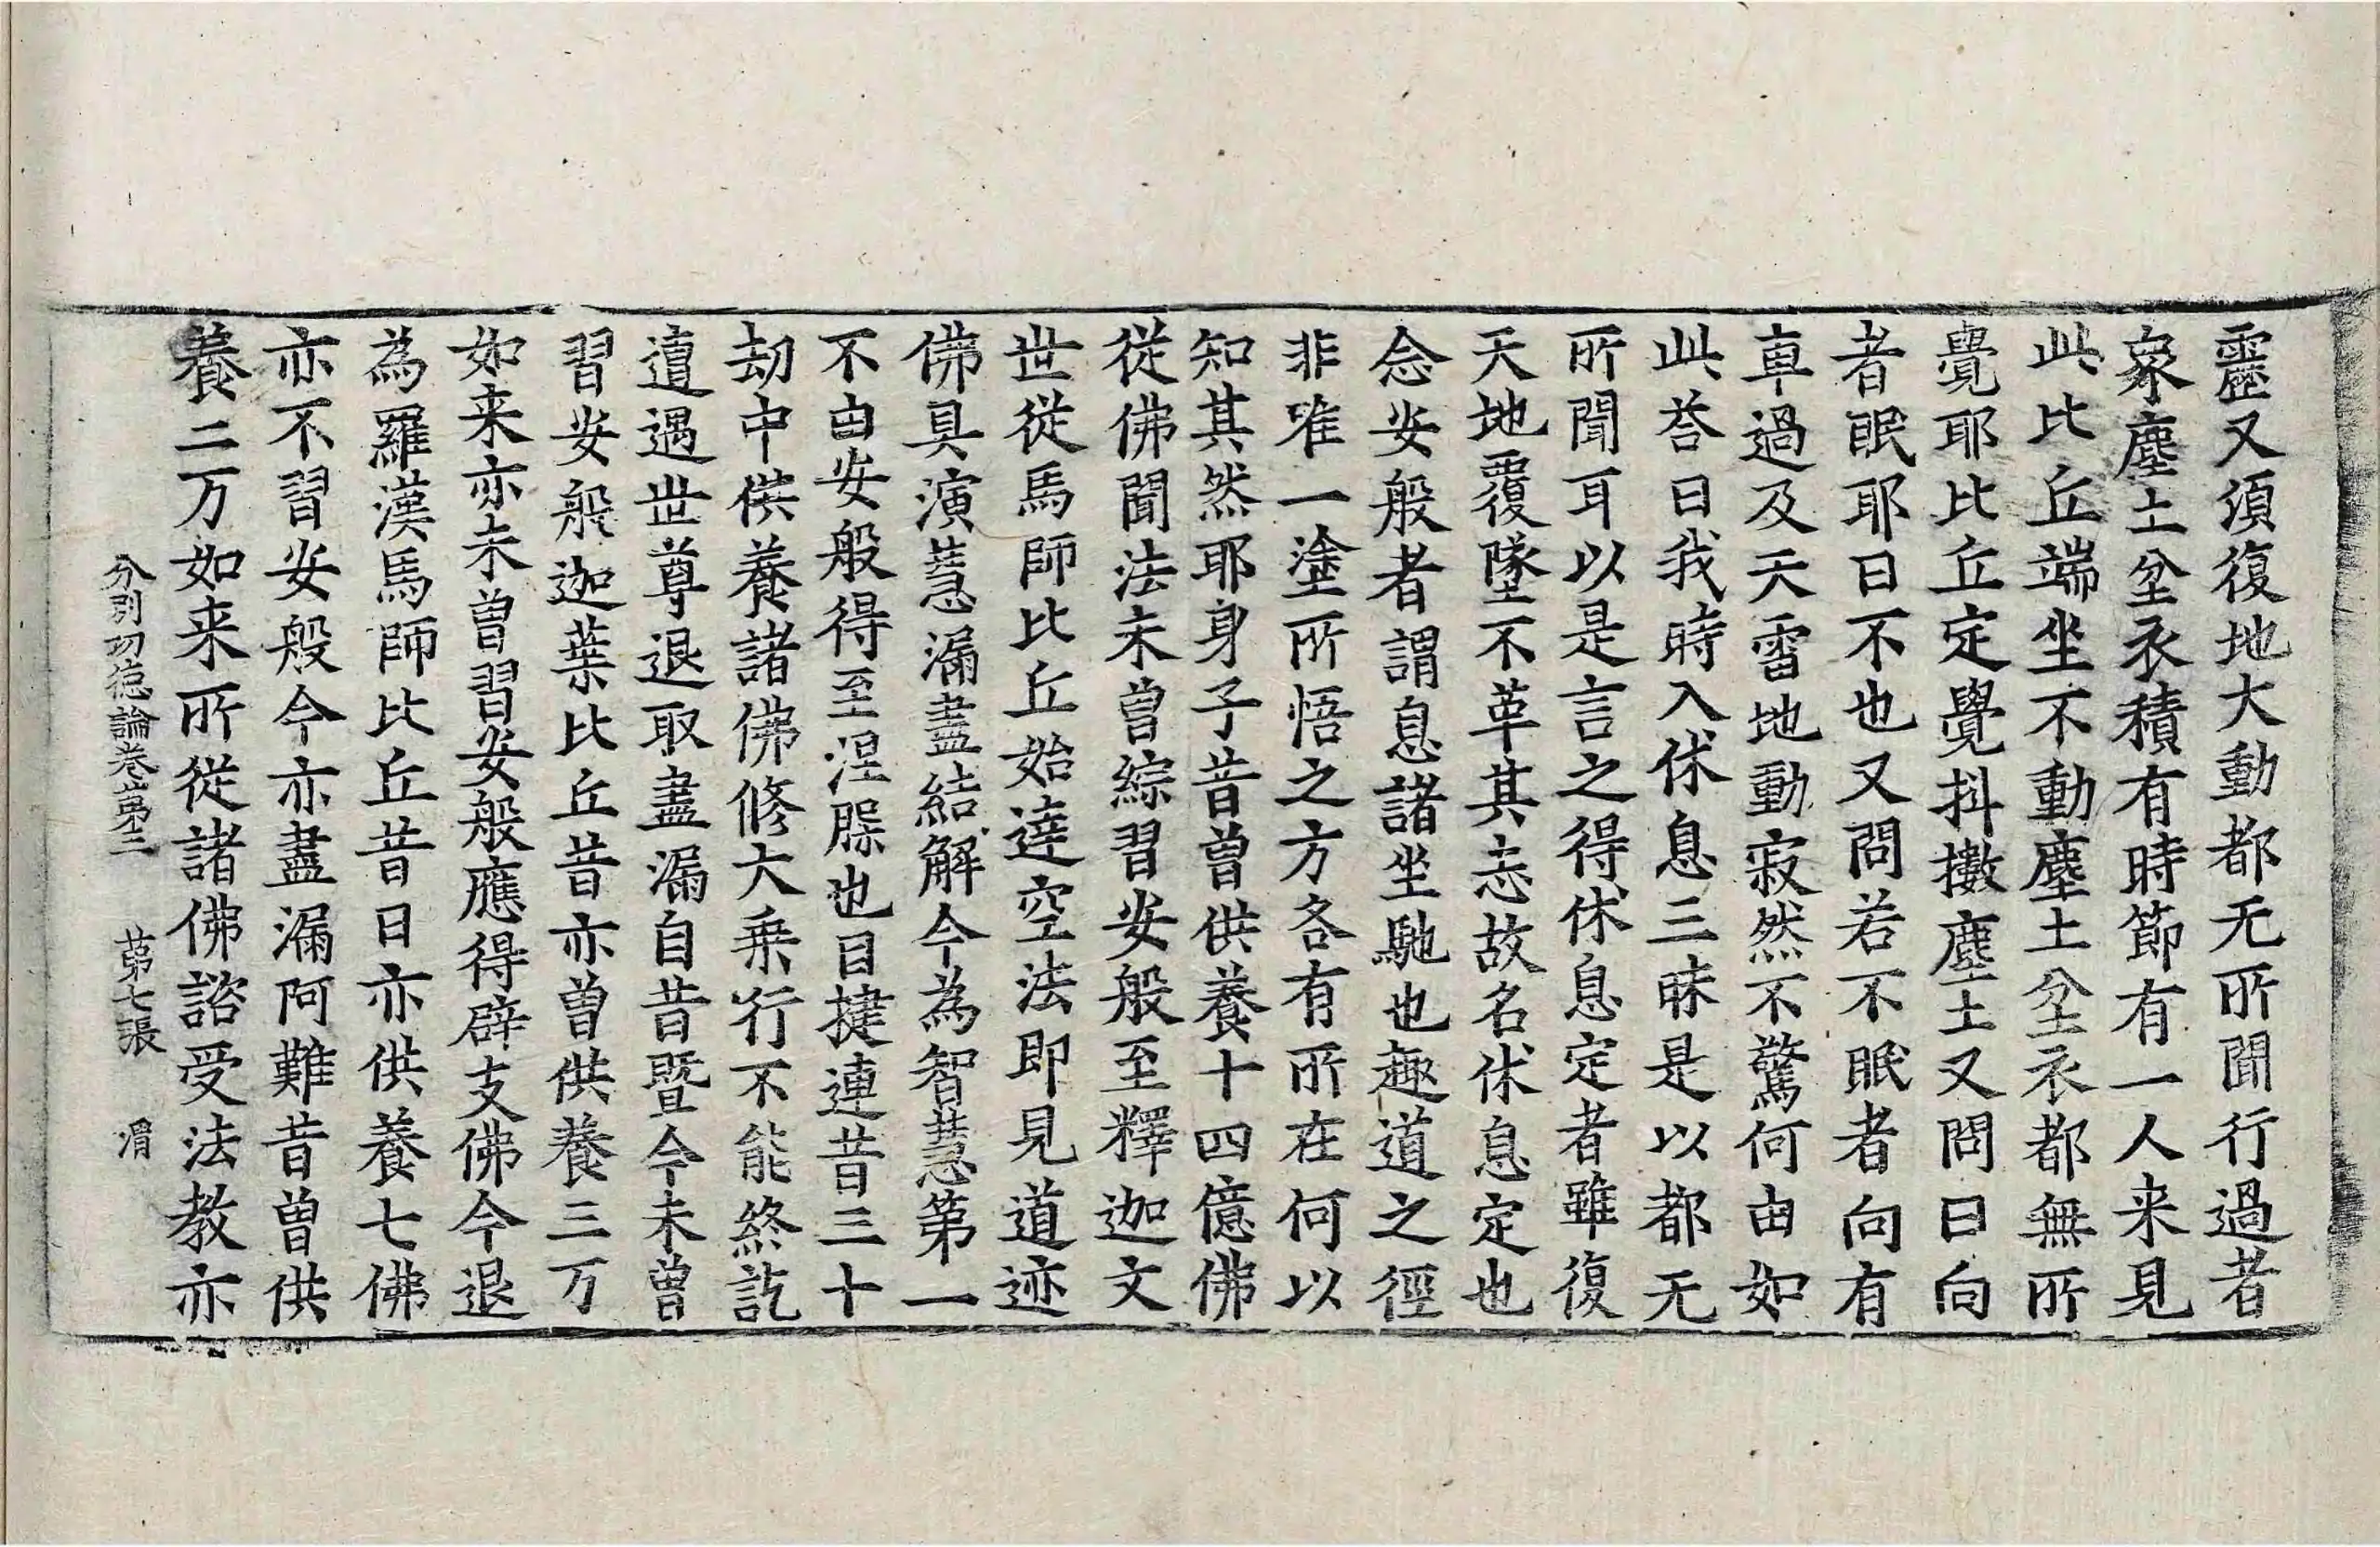 靂又須復地大動都无所聞行過者
衆塵土坌衣積有時節有一人来見
此比丘端坐不動塵土坌衣都無所
覺耶比丘定覺抖擻塵土又問曰向
者眠耶曰不也又問若不眠者向有
車過及天雷地動寂然不驚何由如
此荅曰我時入休息三昧是以都无
所聞耳以是言之得休息定者雖復
天地覆墜不革其志故名休息定也
念安般者謂息諸坐馳也趣道之徑
非唯一塗所悟之方各有所在何以
知其然耶身子昔曾供養十四億佛
從佛聞法未曾綜習安般至釋迦文
世從馬師比丘始達空法即見道迹
佛具演慧漏盡結解今為智慧第一
不由安般得至涅槃也目揵連昔三十
劫中供養諸佛修大乗行不能終訖
遺遇世尊退取盡漏自昔暨今未曾
習安般迦葉比丘昔亦曾供養三万
如来亦未曾習安般應得辟支佛今退
為羅漢馬師比丘昔日亦供養七佛
亦不習安般今亦盡漏阿難昔曾供
養二万如来所從諸佛諮受法教亦
分別功德論卷第二　第七張　渭